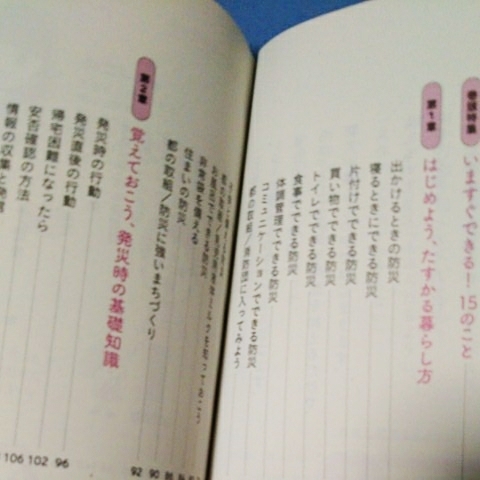 巻頭特集
いますぐできる！ 15のこと
第1章
はじめよう、たすかる暮らし方
出かけるときの防災
寝るときにできる防災
片付けでできる防災
買い物でできる防災
トイレでできる防災
食事でできる防災
体調管理でできる防災
コミュニケーションでできる防災
都の取組／消防団に入ってみよう
を知っておこう
お風呂でできる防災
非常袋を備える
住まいの防災
都の取組／防災に強いまちづくり
第2章
覚えておこう、発災時の基礎知識
発災時の行動
発災直後の行動
帰宅困難になったら
安否確認の方法
情報の収集と発信
92 90
106 102 96